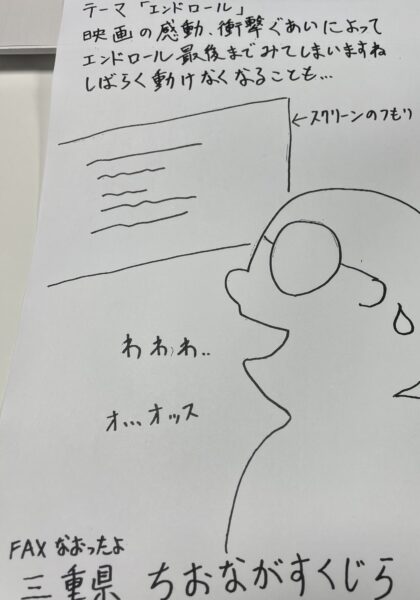 テーマ「エンドロール」
映画の感動、衝撃ぐあいによって
エンドロール最後までみてしまいますね
しばらく動けなくなることも…
←スクリーンのつもり
わわわ..
オ...オッス
FAXなおったよ
三重県 ちおながすくじら